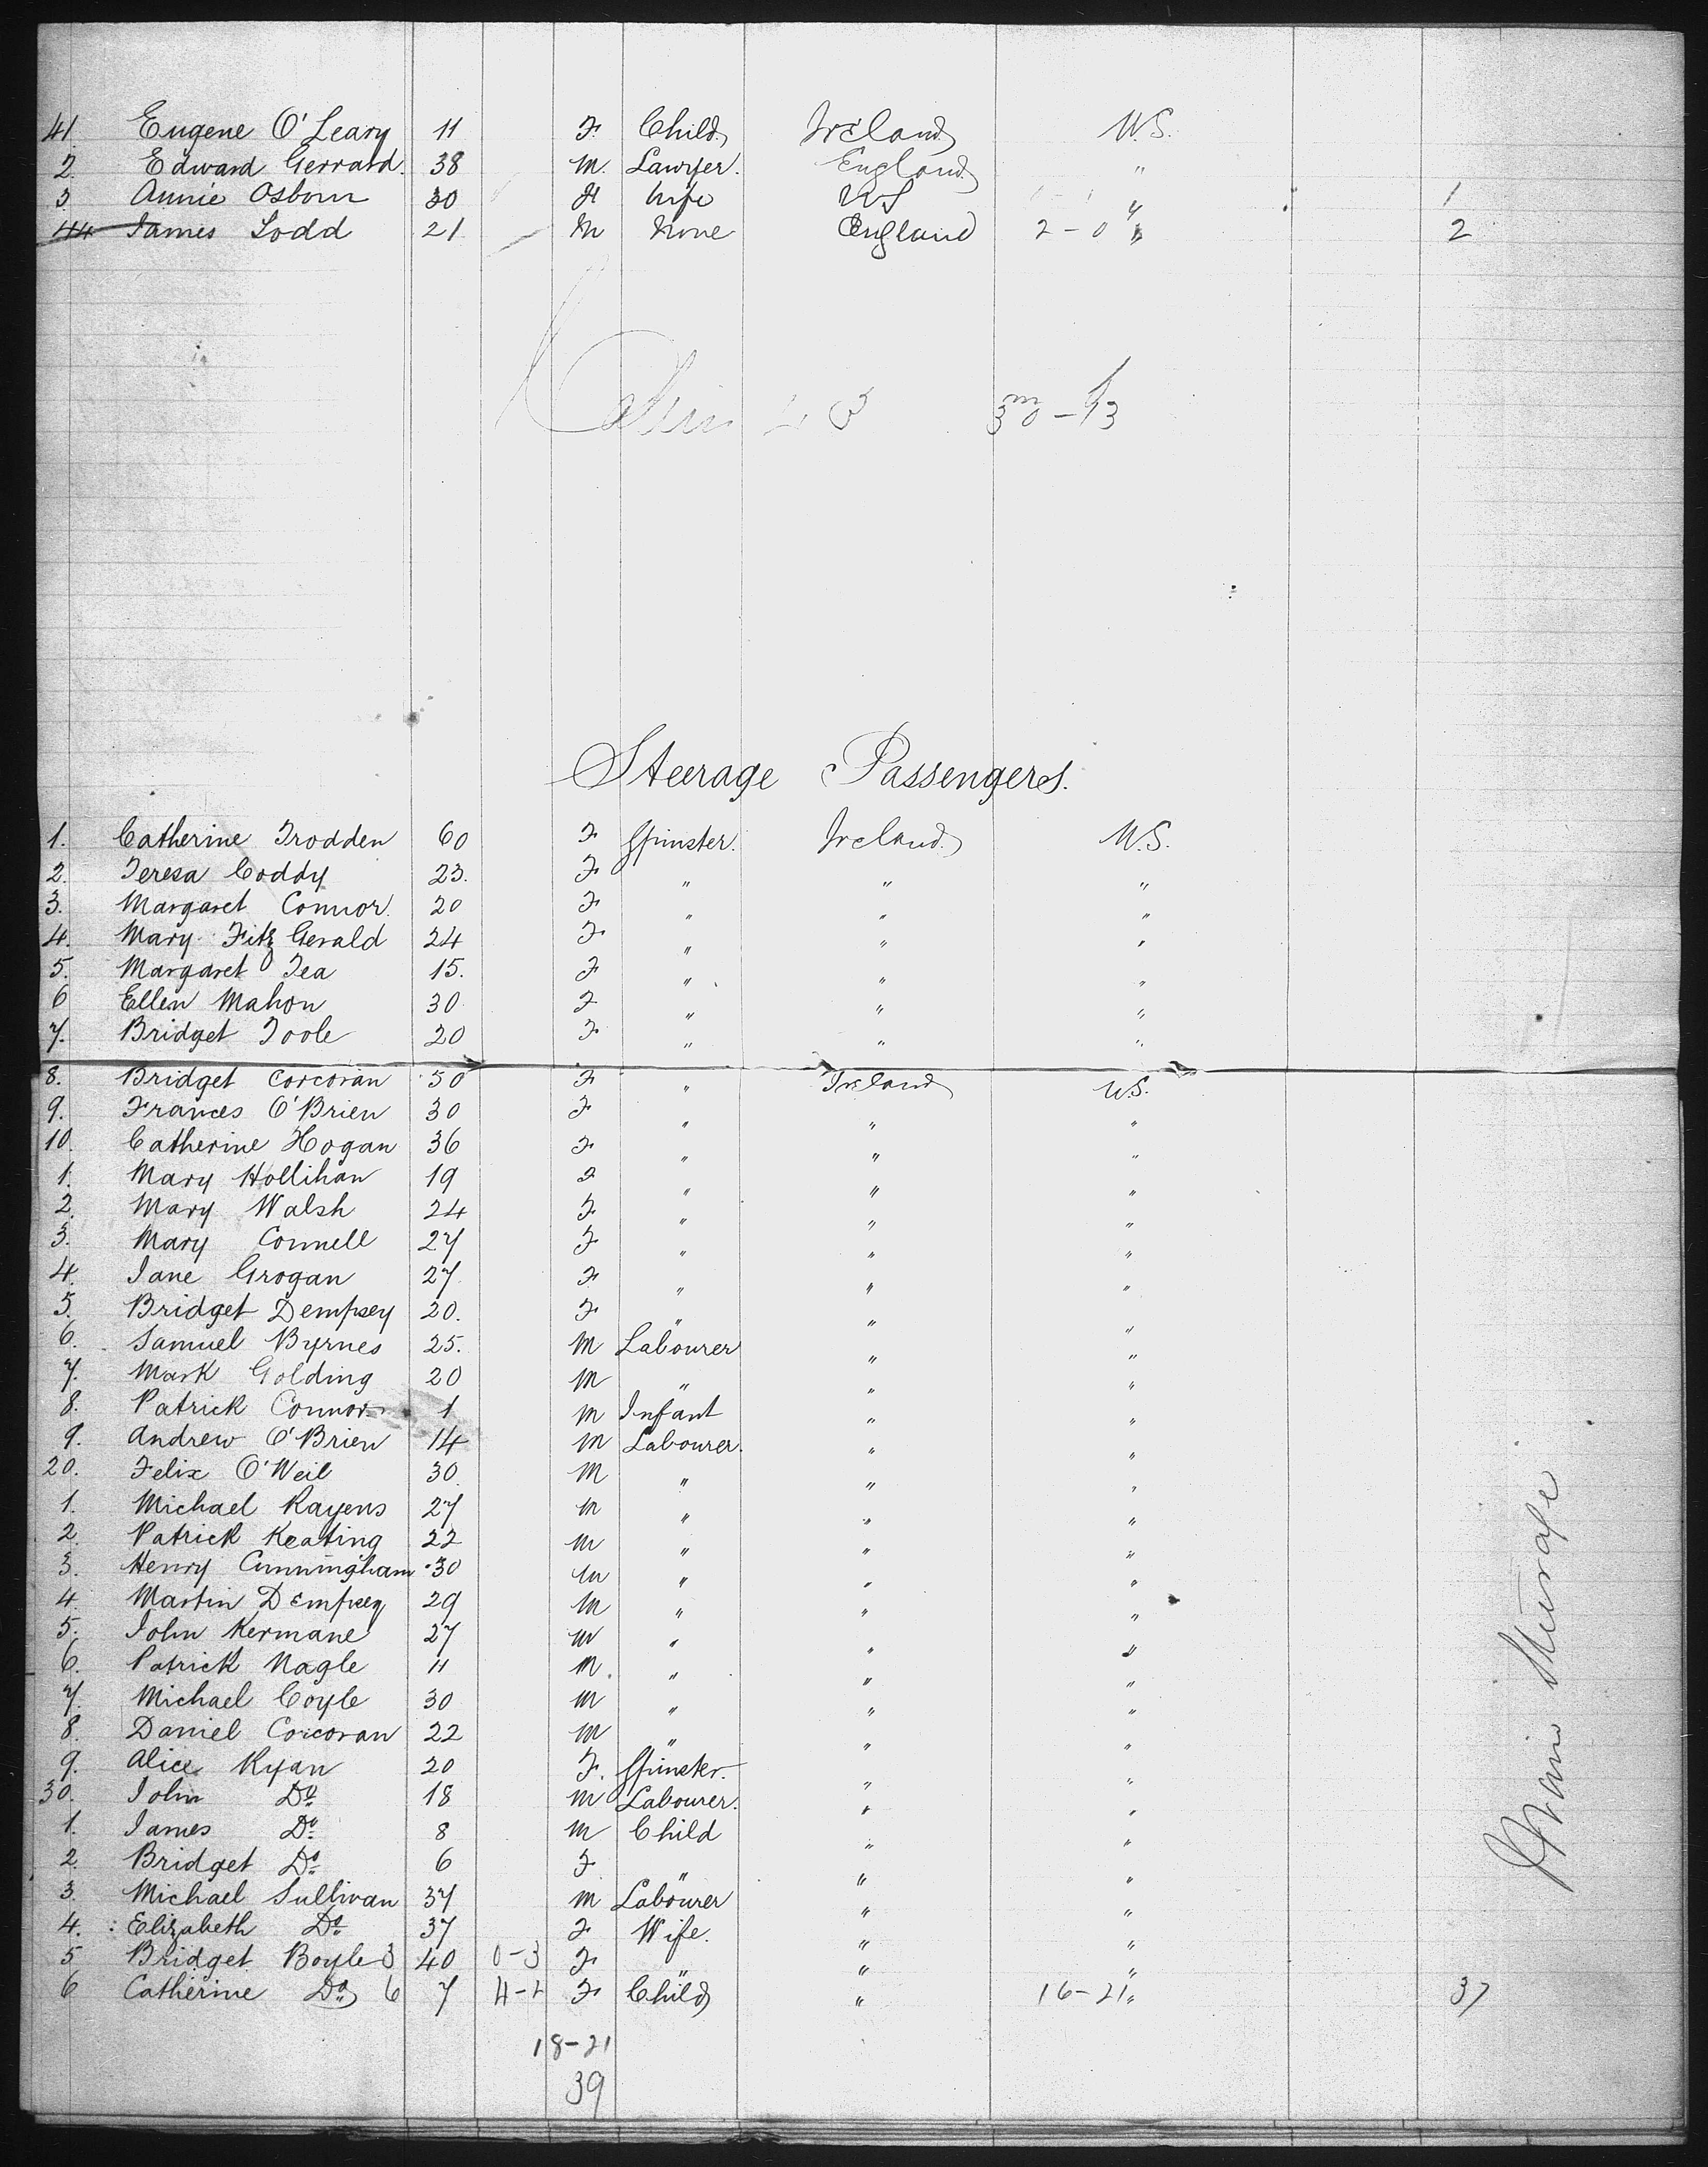 41. Eugene O'Leary 11 F. Child Ireland U.S.
2. Edward Gerrard. 38 M. Lawyer. England "
3 Annie Osborn 30 F Wife US " 1
44 James Todd 21 M None England 2-0 " 2
Cabin 43 m 30 - f 13
Steerage Passengers.
1. Catherine Trodden 60 F Spinster. Ireland. U.S.
2. Teresa Coddy 23. F " " "
3. Margaret Connor. 20 F " " "
4. Mary Fitz Gerald 24 F " " "
5. Margaret Tea 15. F " " "
6 Ellen Mahon 30 F " " "
7. Bridget Toole 20 F " " "
8. Bridget Corcoran 50 F " Ireland U.S.
9. Frances O'Brien 30 F " " "
10. Catherine Hogan 36 F " " "
1. Mary Hollihan 19 F " " "
2. Mary Walsh 24 F " " "
3. Mary Connell 27 F " " "
4. Jane Grogan 27 F " " "
5. Bridget Dempsey 20. F " " "
6. Samuel Byrnes 25. M Labourer " "
7. Mark Golding 20 M " " "
8. Patrick Connor 1 M Infant " "
9. Andrew O'Brien 14 M Labourer. " "
20. Felix O'Neil 30 M " " "
1. Michael Rayens 27 M " " "
2. Patrick Keating 22 M " " "
3. Henry Cunningham 30 M " " "
4. Martin Dempsey 29 M " " "
5. John Kermane 27 M " " "
6. Patrick Nagle 11 M. " " "
7. Michael Coyle 30 M " " "
8. Daniel Corcoran 22 M " " "
9. Alice Ryan 20 F. Spinster. " "
30. John Do 18 M Labourer. " "
1. James Do 8 M Child " "
2. Bridget Do 6 F " " "
3. Michael Sullivan 37 M Labourer " "
4. Elizabeth Do 37 F Wife. " "
5 Bridget Boyle 3 40 0-3 F " " "
6 Catherine Do 6 7 F Child " 16-21 " 37
18-21
39
Steerage